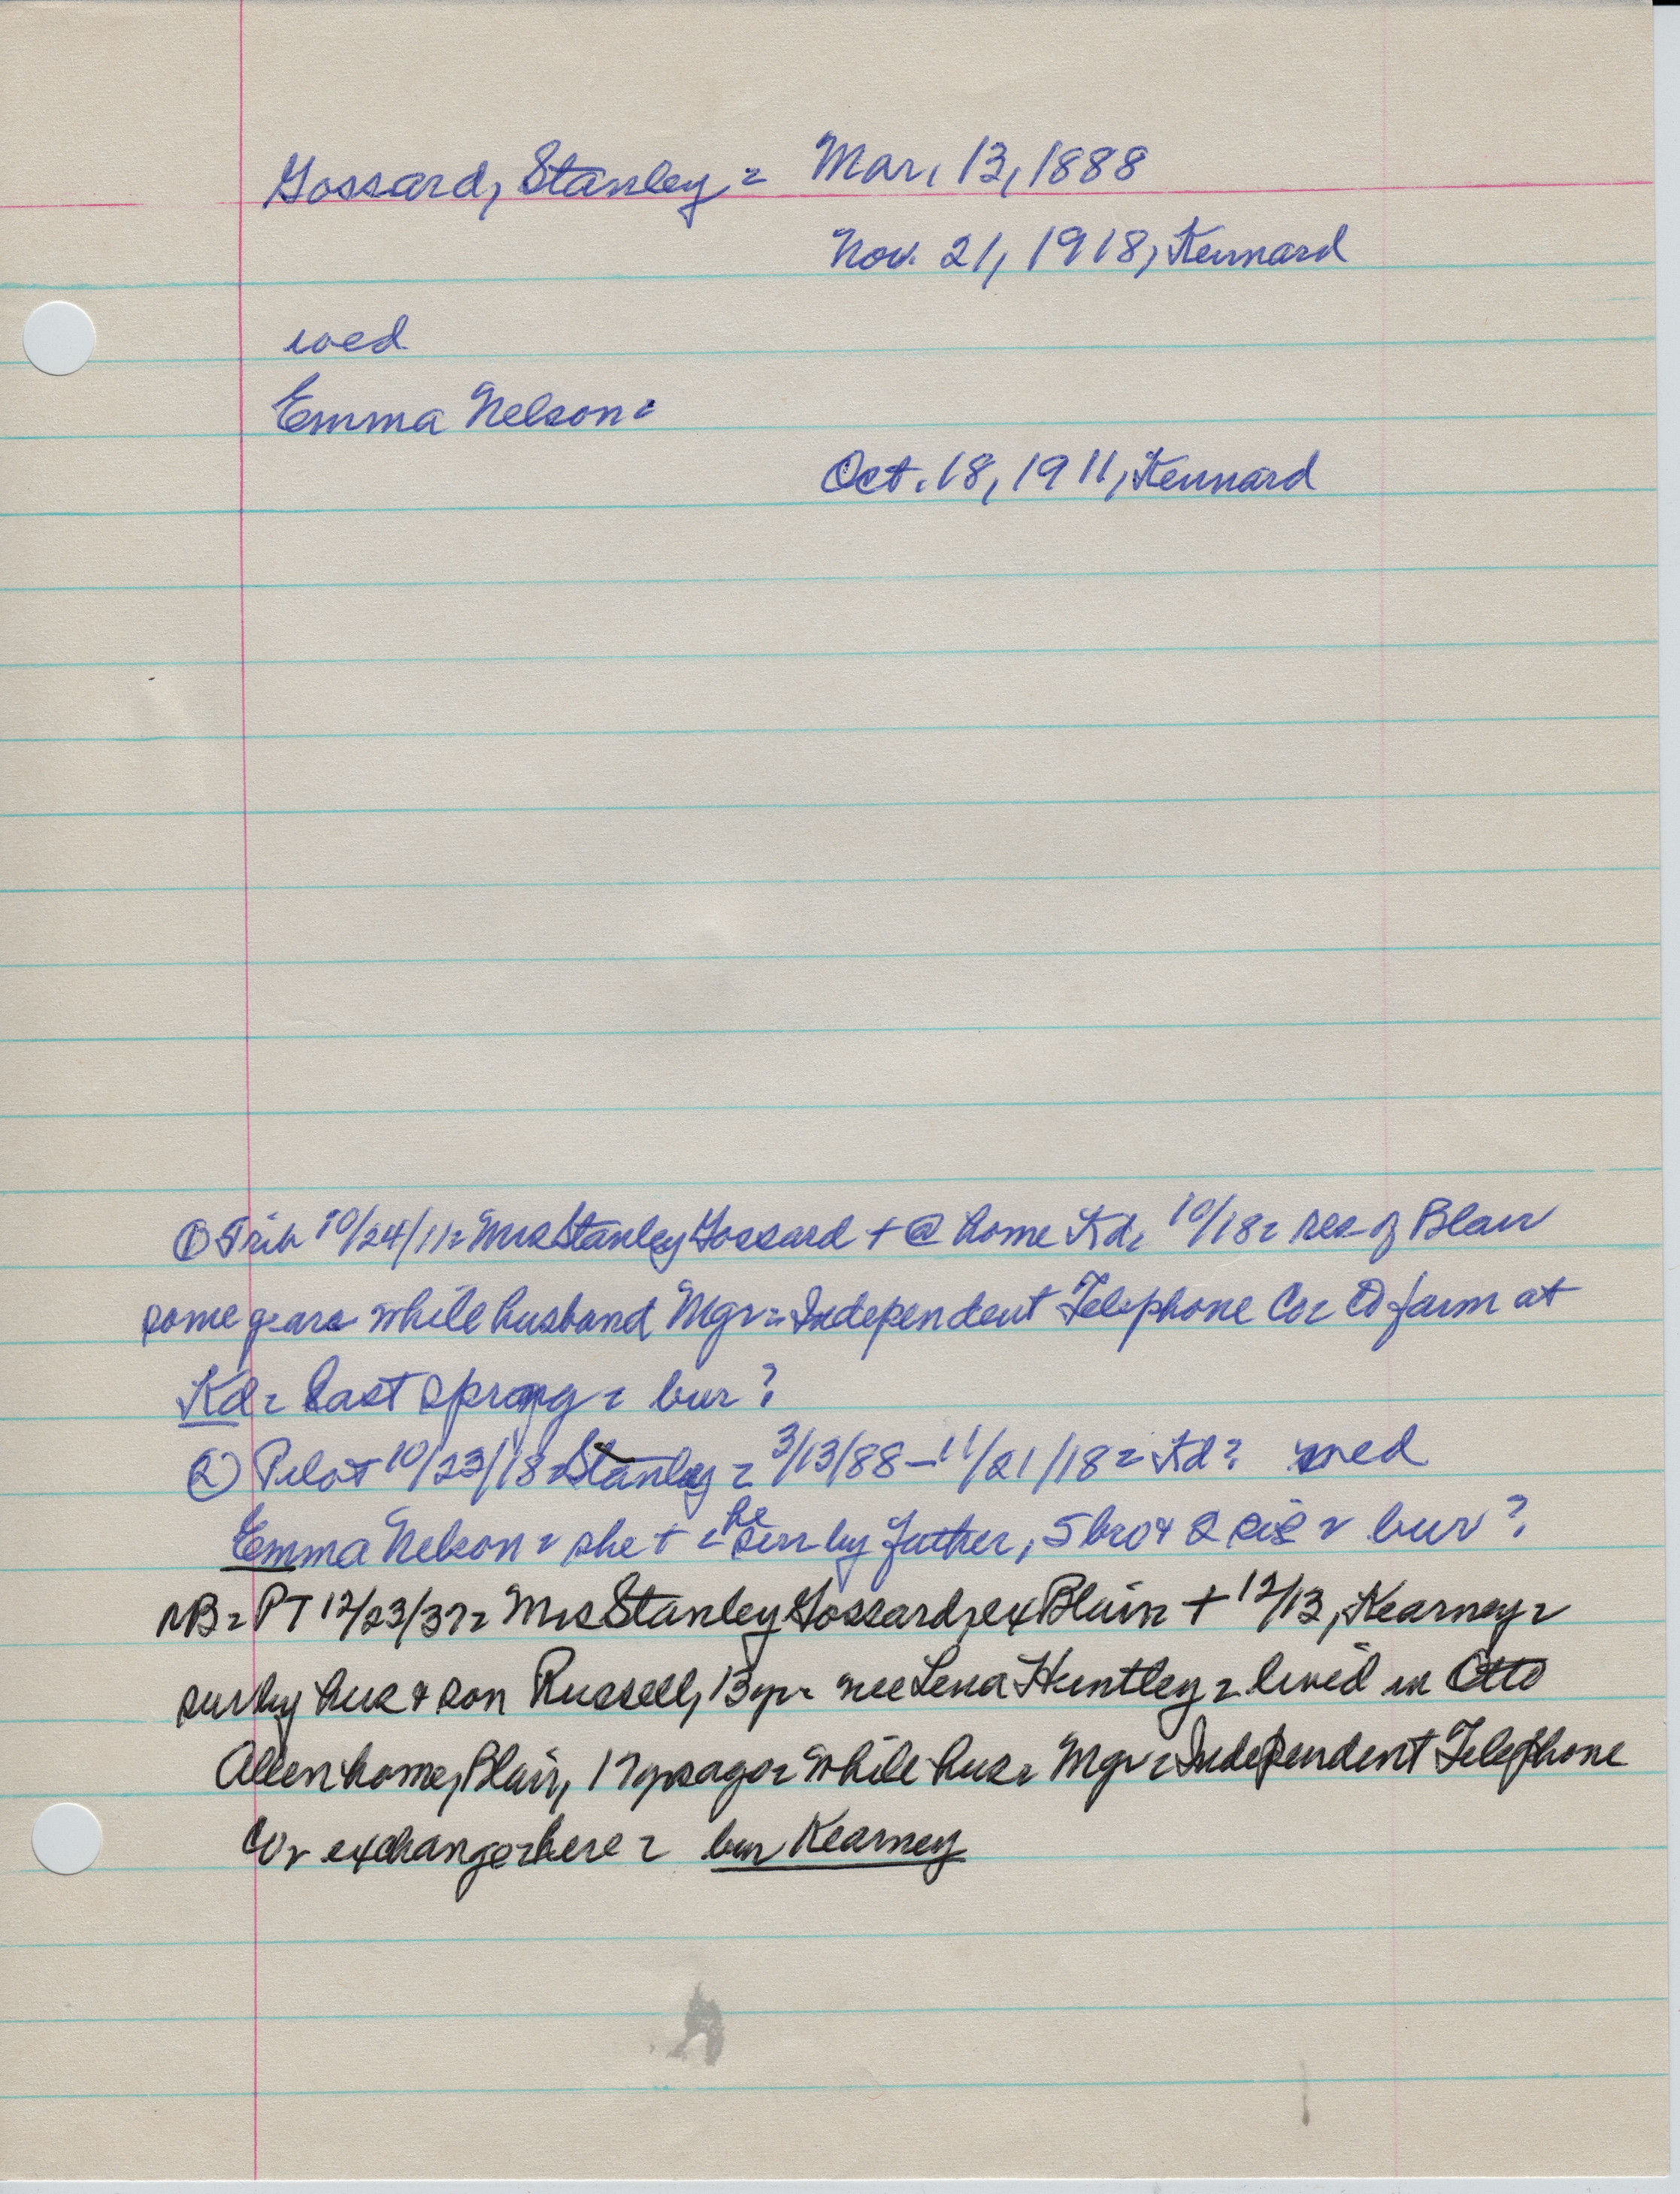 Gossard, Stanley = Mar. 13, 1888
Nov. 21, 1918, Kennard
wed
Emma Nelson =
Oct. 18, 1911, Kennard
① Trib 10/24/11 = Mrs Stanley Gossard + @ home Kd = 10/18 = res of Blair
some years while husband Mgr = Independent Telephone Co = farm at
Kd = last spring = bur?
② Pilot 10/23/18 = Stanley = 3/13/88 - 11/21/18 = Kd = wed
Emma Nelson = she + = he surv by father, 5 bro & 2 sis = bur?
NB = PT 12/23/37 = Mrs Stanley Gossard, ex Blair = + 12/13, Kearney =
surv by hus & son Russell, 13 yr = nee Lena Huntley = lived in Otto
Allen home, Blair, 17 yrs ago = while hus = Mgr = Independent Telephone
Co = exchange here = bur Kearney